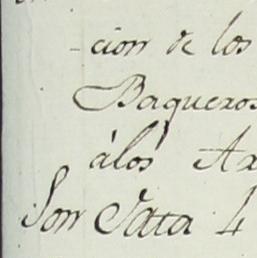 -cion de los
Baqueros
álos
Son Data 4